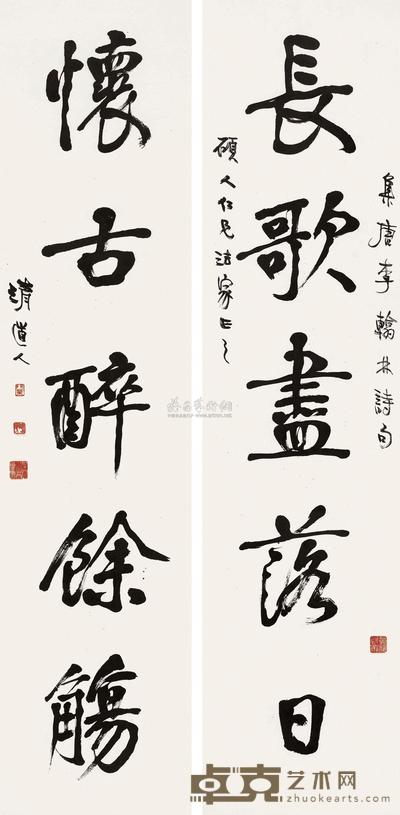 集唐李翰林詩句
長歌盡落日
碩人仁兄法家正之
懷古醉餘觴
清道人
卓克艺术网
www.zhuokearts.com